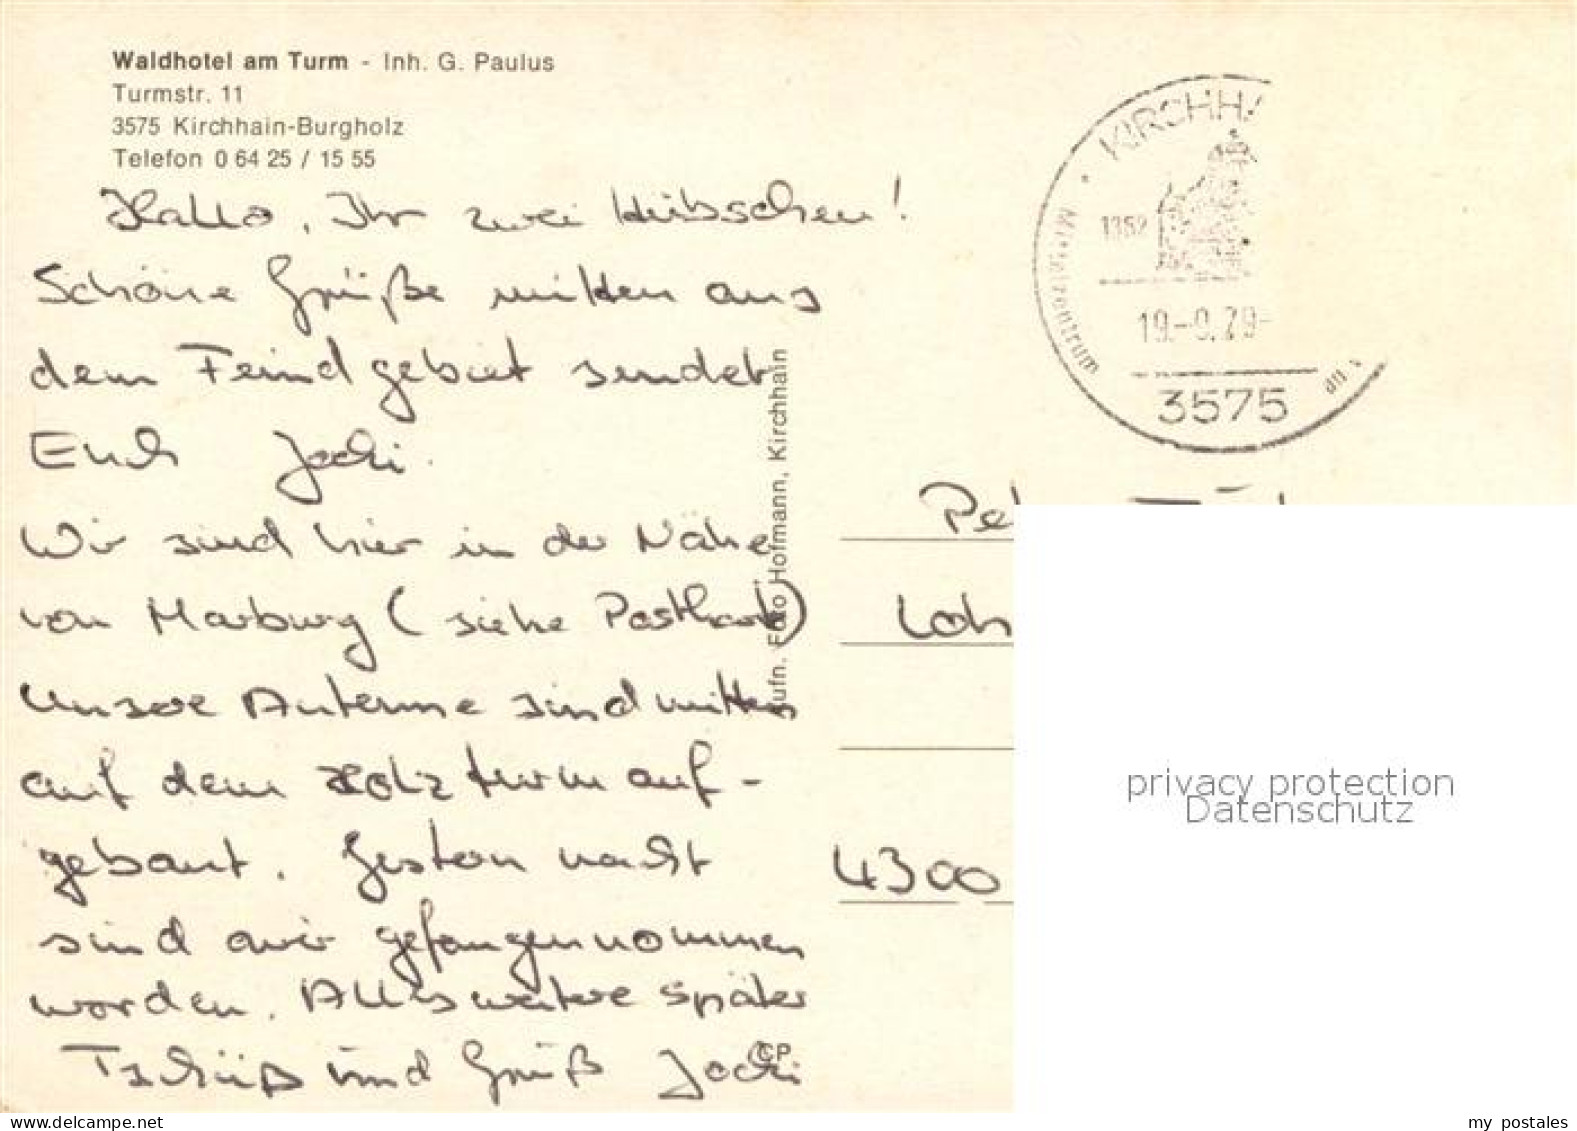 Waldhotel am Turm - Inh. G. Paulus
Turmstr. 11
3575 Kirchhain-Burgholz
Telefon 0 64 25 / 15 55
Hallo, Ihr zwei Hübschen!
Schöne Grüße mitten aus
dem Feindgebiet sendet
Euch Jochi.
Wir sind hier in der Nähe
von Marburg (siehe Postkarte)
Unsere Antenne sind mitten
auf dem Holzturm auf-
gebaut. Gestern nacht
sind wir gefangennommen
worden. Alles weitere später
Tschüß und Gruß Jochi
Aufn. Foto Hofmann, Kirchhain
CP
KIRCHHA
1352
19.-9.79-
3575
4300
privacy protection
Datenschutz
www.delcampe.net
my postales